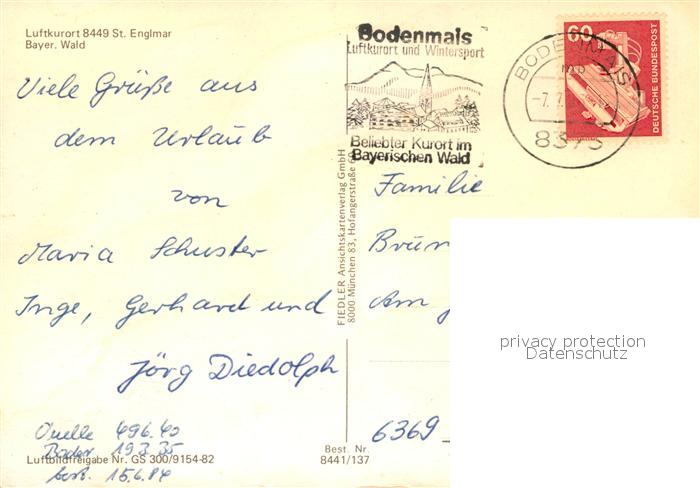 Luftkurort 8449 St. Englmar
Bayer. Wald
Viele Grüße aus
dem Urlaub
von
Maria Schuster
Inge, Gerhard und
Jörg Diedolph
Quelle 496.40
Baden 193.35
15.6.84
Luftbildfreigabe Nr. GS 300/9154-82
Bodenmais
Luftkurort und Wintersport
Beliebter Kurort im
Bayerischen Wald
BODENMAIS
8373
60
DEUTSCHE BUNDESPOST
FIEDLER Ansichtskartenverlag GmbH
8000 München 83, Hofangerstraße
Familie
Brün
Am
6369
Best. Nr.
8441/137
privacy protection
Datenschutz